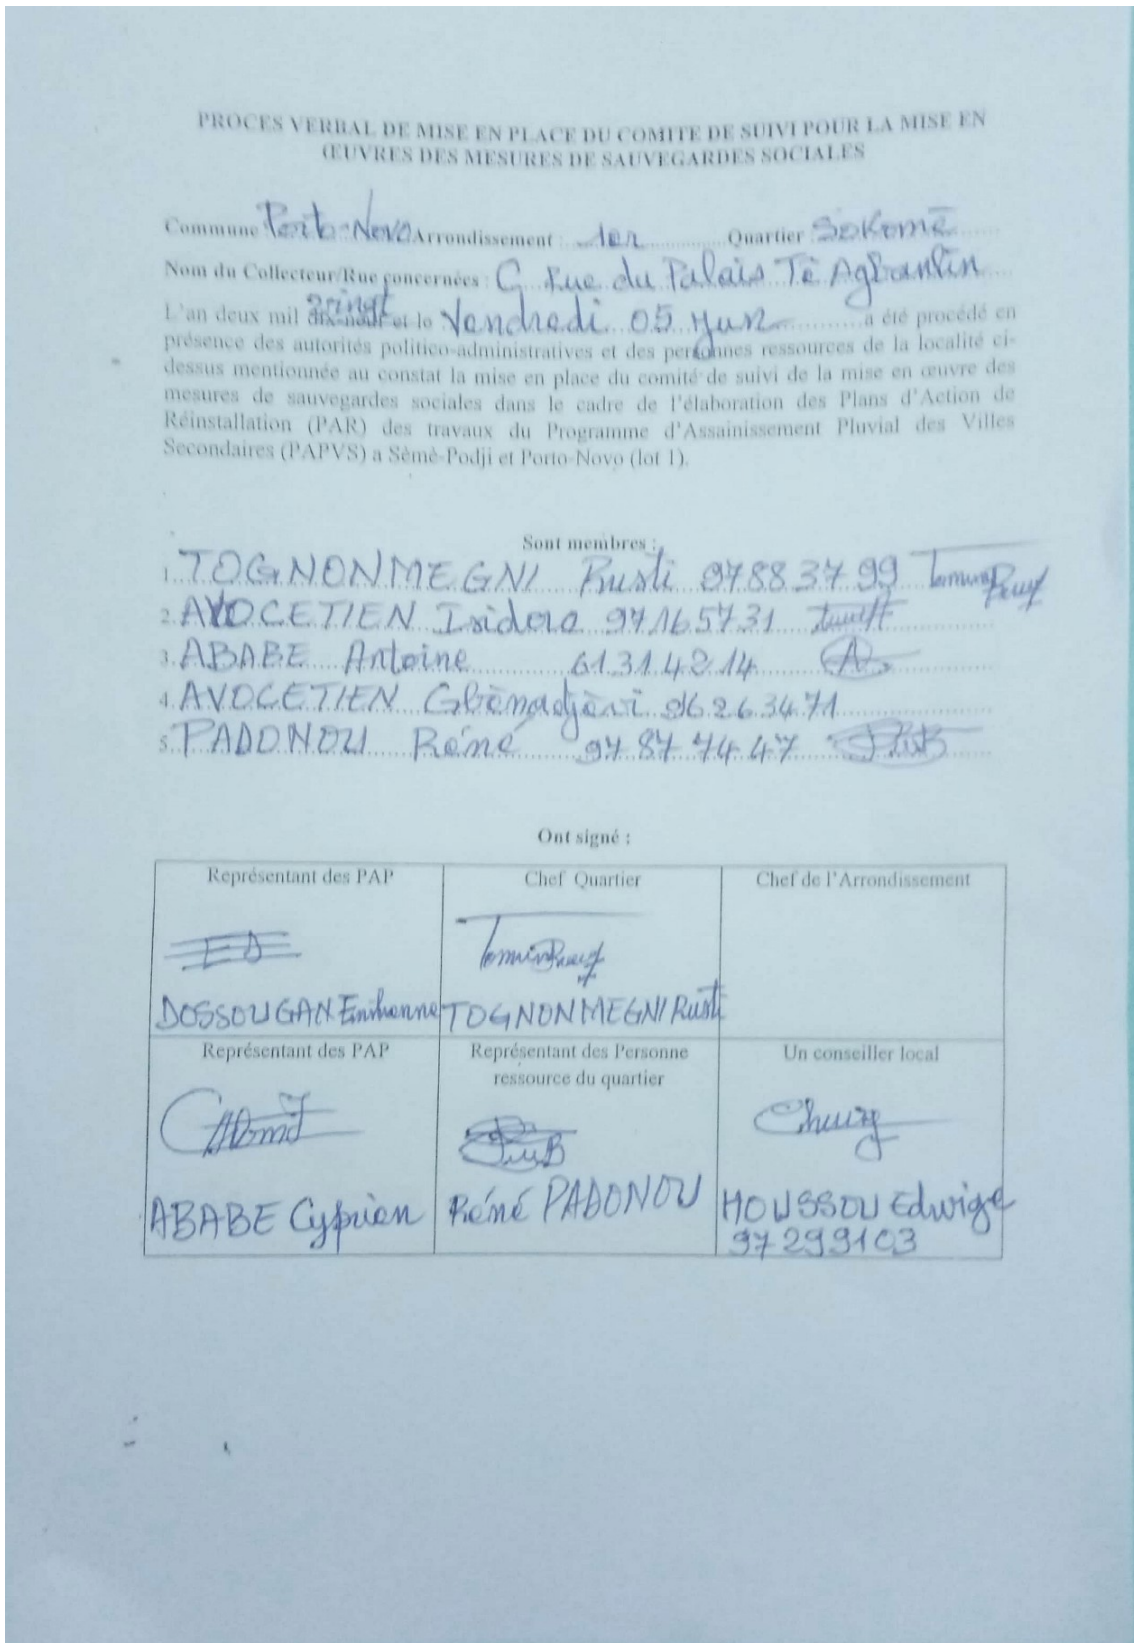 PROCES VERBAL DE MISE EN PLACE DU COMITE DE SUIVI POUR LA MISE EN
ŒUVRES DES MESURES DE SAUVEGARDES SOCIALES
Commune Porto-Novo Arrondissement : 1er Quartier Sokomè
Nom du Collecteur/Rue concernées : G Rue du Palais Tè Agbanlin
L'an deux mil dix-neuf vingt et le Vendredi 05 Juin a été procédé en
présence des autorités politico-administratives et des personnes ressources de la localité ci-
dessus mentionnée au constat la mise en place du comité de suivi de la mise en œuvre des
mesures de sauvegardes sociales dans le cadre de l'élaboration des Plans d'Action de
Réinstallation (PAR) des travaux du Programme d'Assainissement Pluvial des Villes
Secondaires (PAPVS) a Sèmè-Podji et Porto-Novo (lot 1).
Sont membres :
1. TOGNONMEGNI Rusti 97883799
2. AVOCETIEN Isidore 97.16.57.31
3. ABABE Antoine 61.31.42.14
4. AVOCETIEN Gbènadjèvi 96.26.34.71
5. PADONOU Réné 97.87.74.47
Ont signé :
Représentant des PAP Chef Quartier Chef de l'Arrondissement
ED
DOSSOUGAN TOGNONMEGNI Rusti
Représentant des PAP Représentant des Personne Un conseiller local
ressource du quartier
ABABE Cyprien Réné PADONOU HOUSSOU Edwige
97299103